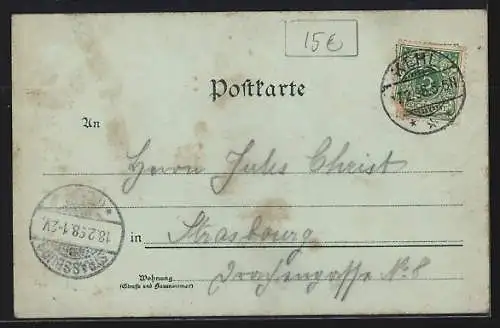 15€
KEHL
Postkarte
An
Herrn Jules Christ
18.2.98.1-2V.
STRASSBURG
in Strasbourg
Wohnung
(Straße und Hausnummer)
Drachengasse № 8